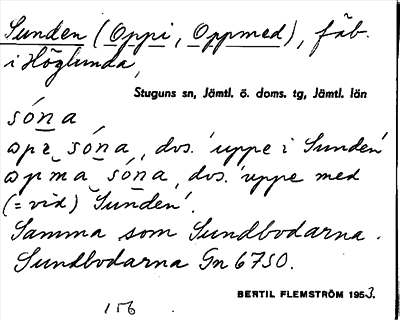 Sunden (Oppi, Oppmed), fäb.
i Höglunda,
Stuguns sn, Jämtl. ö. doms. tg, Jämtl. län
sóna
sóna, dvs. 'uppe i Sunden'
sóna, dvs. 'uppe med
(= vid) Sunden'.
Samma som Sundbodarna.
Sundbodarna Gn 6750.
BERTIL FLEMSTRÖM 1953.
156